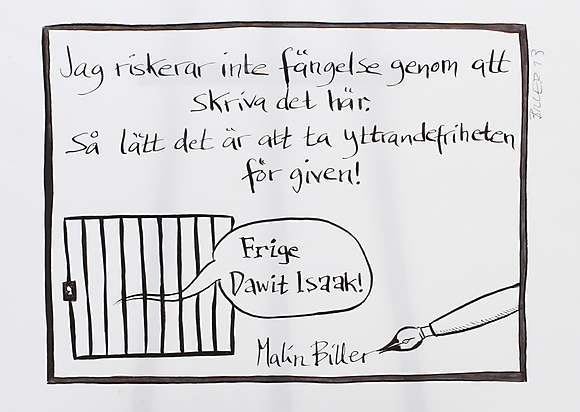 Jag riskerar inte fängelse genom att
skriva det här.
Så lätt det är att ta yttrandefriheten
för given!
Frige
Dawit Isaak!
Malin Biller
BILLER 13